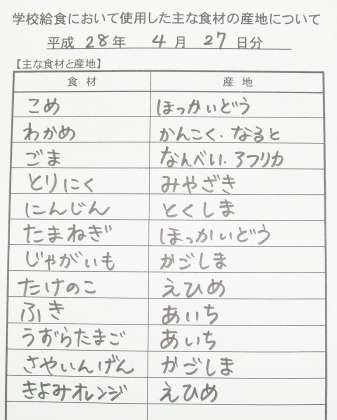 学校給食において使用した主な食材の産地について
平成 28 年 4 月 27 日分
【主な食材と産地】
食材 産地
こめ ほっかいどう
わかめ かんこく、なると
ごま なんべい、アフリカ
とり にく みやざき
にんじん とくしま
たまねぎ ほっかいどう
じゃがいも かごしま
たけのこ えひめ
ふき あいち
うずらたまご あいち
さやいんげん かごしま
きよみオレンジ えひめ